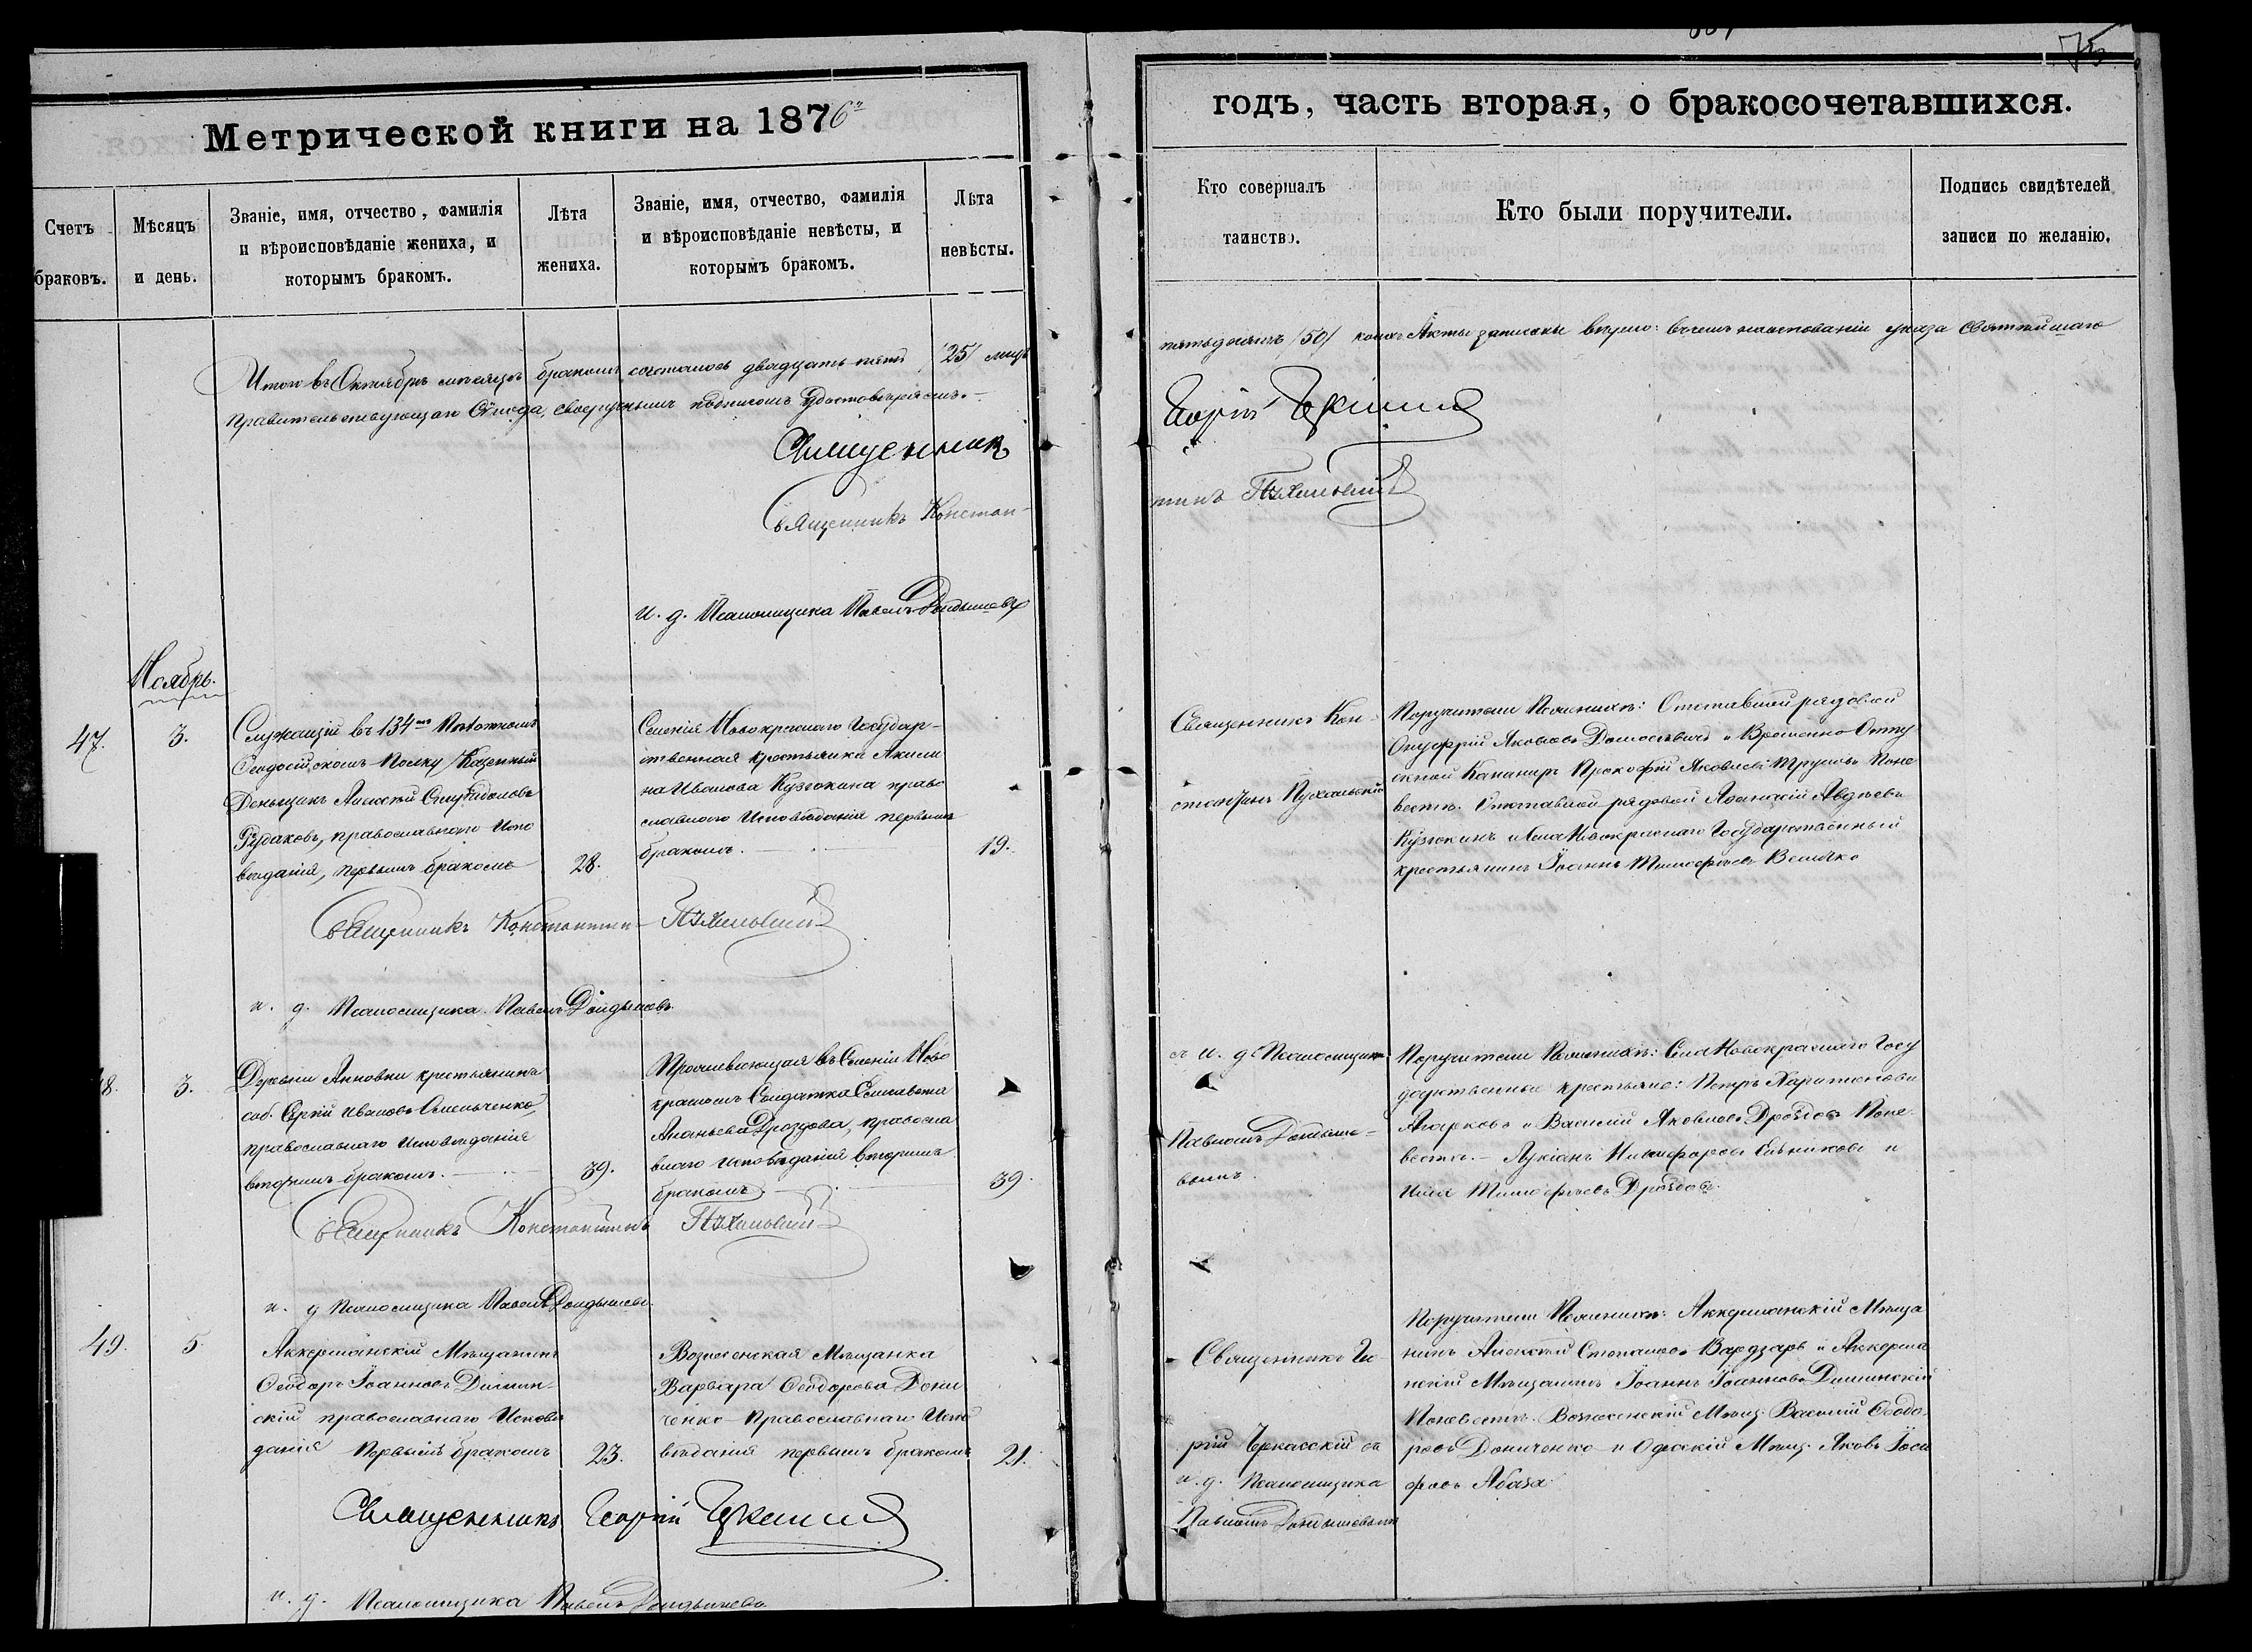 75
Метрической книги на 1876й
годъ, часть вторая, о бракосочетавшихся.
Счетъ
браковъ.
Мѣсяцъ
и день.
Званіе, имя, отчество, фамилія
и вѣроисповѣданіе жениха, и
которымъ бракомъ.
Лѣта
жениха.
Званіе, имя, отчество, фамилія
и вѣроисповѣданіе невѣсты, и
которымъ бракомъ.
Лѣта
невѣсты.
Кто совершалъ
таинство.
Кто были поручители.
Подпись свидѣтелей
записи по желанію.
Итого въ Октябрѣ мѣсяцѣ бракомъ сочеталось двадцать пять /25/
пятьдесятъ /50/ коихъ Акты записаны вѣрно: въ чемъ на основаніи указа Святѣйшаго
Правительствующаго Сѵнода, своеручнымъ подписомъ удостовѣряемъ.
Священникъ
Георгій
Священникъ Констан-
тинъ Пухальскій
и. д. Псаломщика Павелъ
Ноябрь.
47.
3.
Служащій въ 134мъ Пѣхотномъ
Ѳеодосійскомъ Полку Казенный
Деньщикъ Алексѣй Спиридоновъ
Рудаковъ, православнаго Испо
вѣданія, первымъ бракомъ
28.
Селенія Новокраснаго Государ-
ственная крестьянка Акили
на Иванова Кузюкина право
славнаго Исповѣданія первымъ
бракомъ.
19.
Священникъ Кон-
стантинъ Пухальскій
Поручители По женихѣ: Отставной рядовой
Онуфрій Яковлевъ и Временно Отпу
скной Канониръ Прокофій Яковлевъ По не
вѣстѣ. Отставной рядовой Аѳанасій Авдѣевъ
Кузюкинъ и Села Новокраснаго Государственный
крестьянинъ Іоаннъ Тимофѣевъ
Священникъ Константинъ Пухальскій
и. д. Псаломщика Павелъ
3.
Деревни Анновки крестьянинъ
соб. Сергій Ивановъ Омельченко,
православнаго Исповѣданія
вторымъ бракомъ.
39.
Проживающая въ Селеніи Ново
красномъ Солдатка Елисавета
Ананьева Дроздова, правосла
внаго Исповѣданія вторымъ
бракомъ.
39.
съ и. д. Псаломщика
Павломъ
вымъ.
Поручители По женихѣ: Села Новокраснаго Госу
дарственные крестьяне: Петръ Харитоновъ
Агарковъ и Василій Яковлевъ Дроздовъ По не
вѣстѣ. Лукіанъ Никифоровъ и
Илія Тимофѣевъ Дроздовъ.
Священникъ Константинъ Пухальскій
и. д. Псаломщика Павелъ
49.
5.
Аккерманскій Мѣщанинъ
Ѳеодоръ Іоанновъ Димин-
скій православнаго Исповѣ
данія первымъ бракомъ
23.
Вознесенская Мѣщанка
Варвара Ѳеодорова Дони
ченко Православнаго Испо
вѣданія первымъ бракомъ
21.
Священникъ Ге-
ргій Черкасскій съ
и. д. Псаломщика
Павломъ
Поручители По женихѣ: Аккерманскій Мѣща
нинъ Алексѣй Степановъ Вардзарь и Аккерма
нскій Мѣщанинъ Іоаннъ Іоанновъ Диминскій
По невѣстѣ. Вознесенскій Мѣщ. Василій Ѳеодо-
ровъ Дониченко и Одесскій Мѣщ. Яковъ Іоси
фовъ Абаза
Священникъ Георгій
и. д. Псаломщика Павелъ